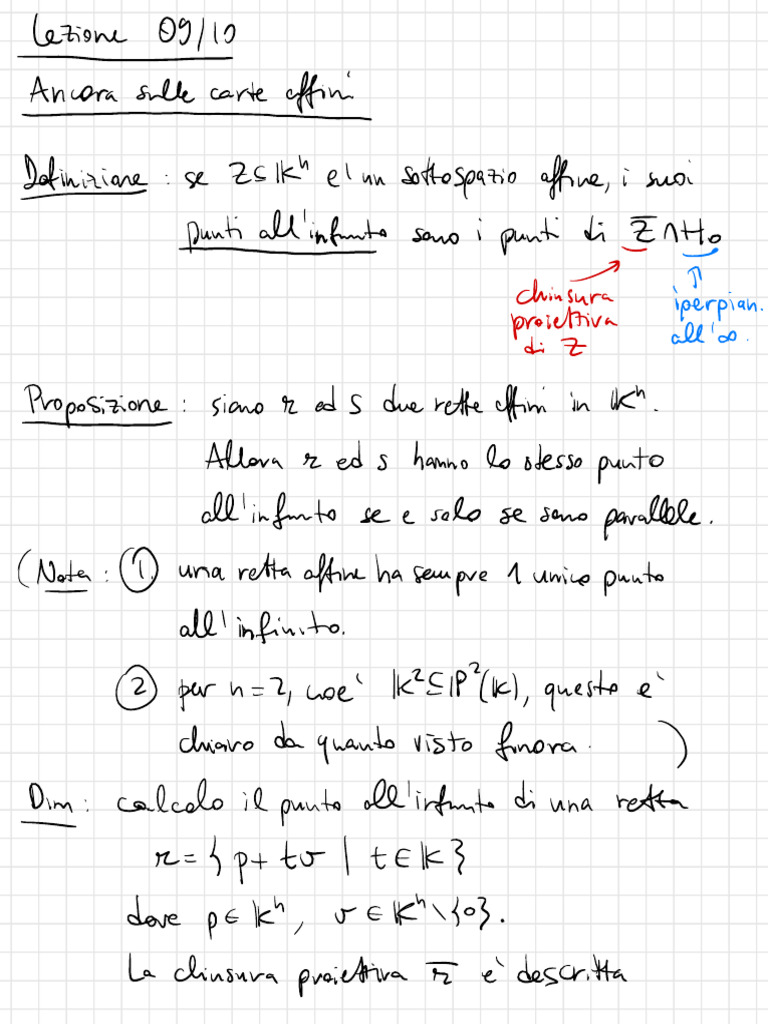 Lezione 09/10
Ancora sulle carte affini
Definizione : se Z ⊆ 𝕂ⁿ e' un sottospazio affine, i suoi
punti all'infinito sono i punti di Z̅ ∩ H₀
chiusura
proiettiva
di Z
iperpian.
all'∞.
Proposizione : siano r ed s due rette affini in 𝕂ⁿ.
Allora r ed s hanno lo stesso punto
all'infinito se e solo se sono parallele.
(Nota : ① una retta affine ha sempre 1 unico punto
all'infinito.
② per n = 2, cioe' 𝕂² ⊆ ℙ²(𝕂), questo e'
chiaro da quanto visto finora. )
Dim : calcolo il punto all'infinito di una retta
r = { p + tv | t ∈ 𝕂 }
dove p ∈ 𝕂ⁿ, v ∈ 𝕂ⁿ \ {0}.
La chiusura proiettiva r̅ e' descritta